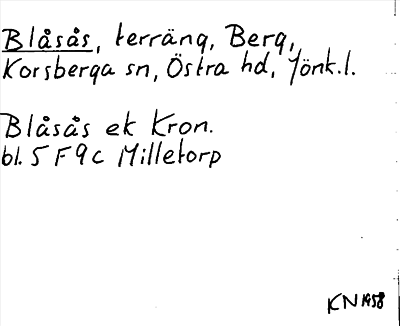 Blåsås, terräng, Berg,
Korsberga sn, Östra hd, Jönk.l.
Blåsås ek Kron.
bl. 5 F 9 c Milletorp
KN 1958